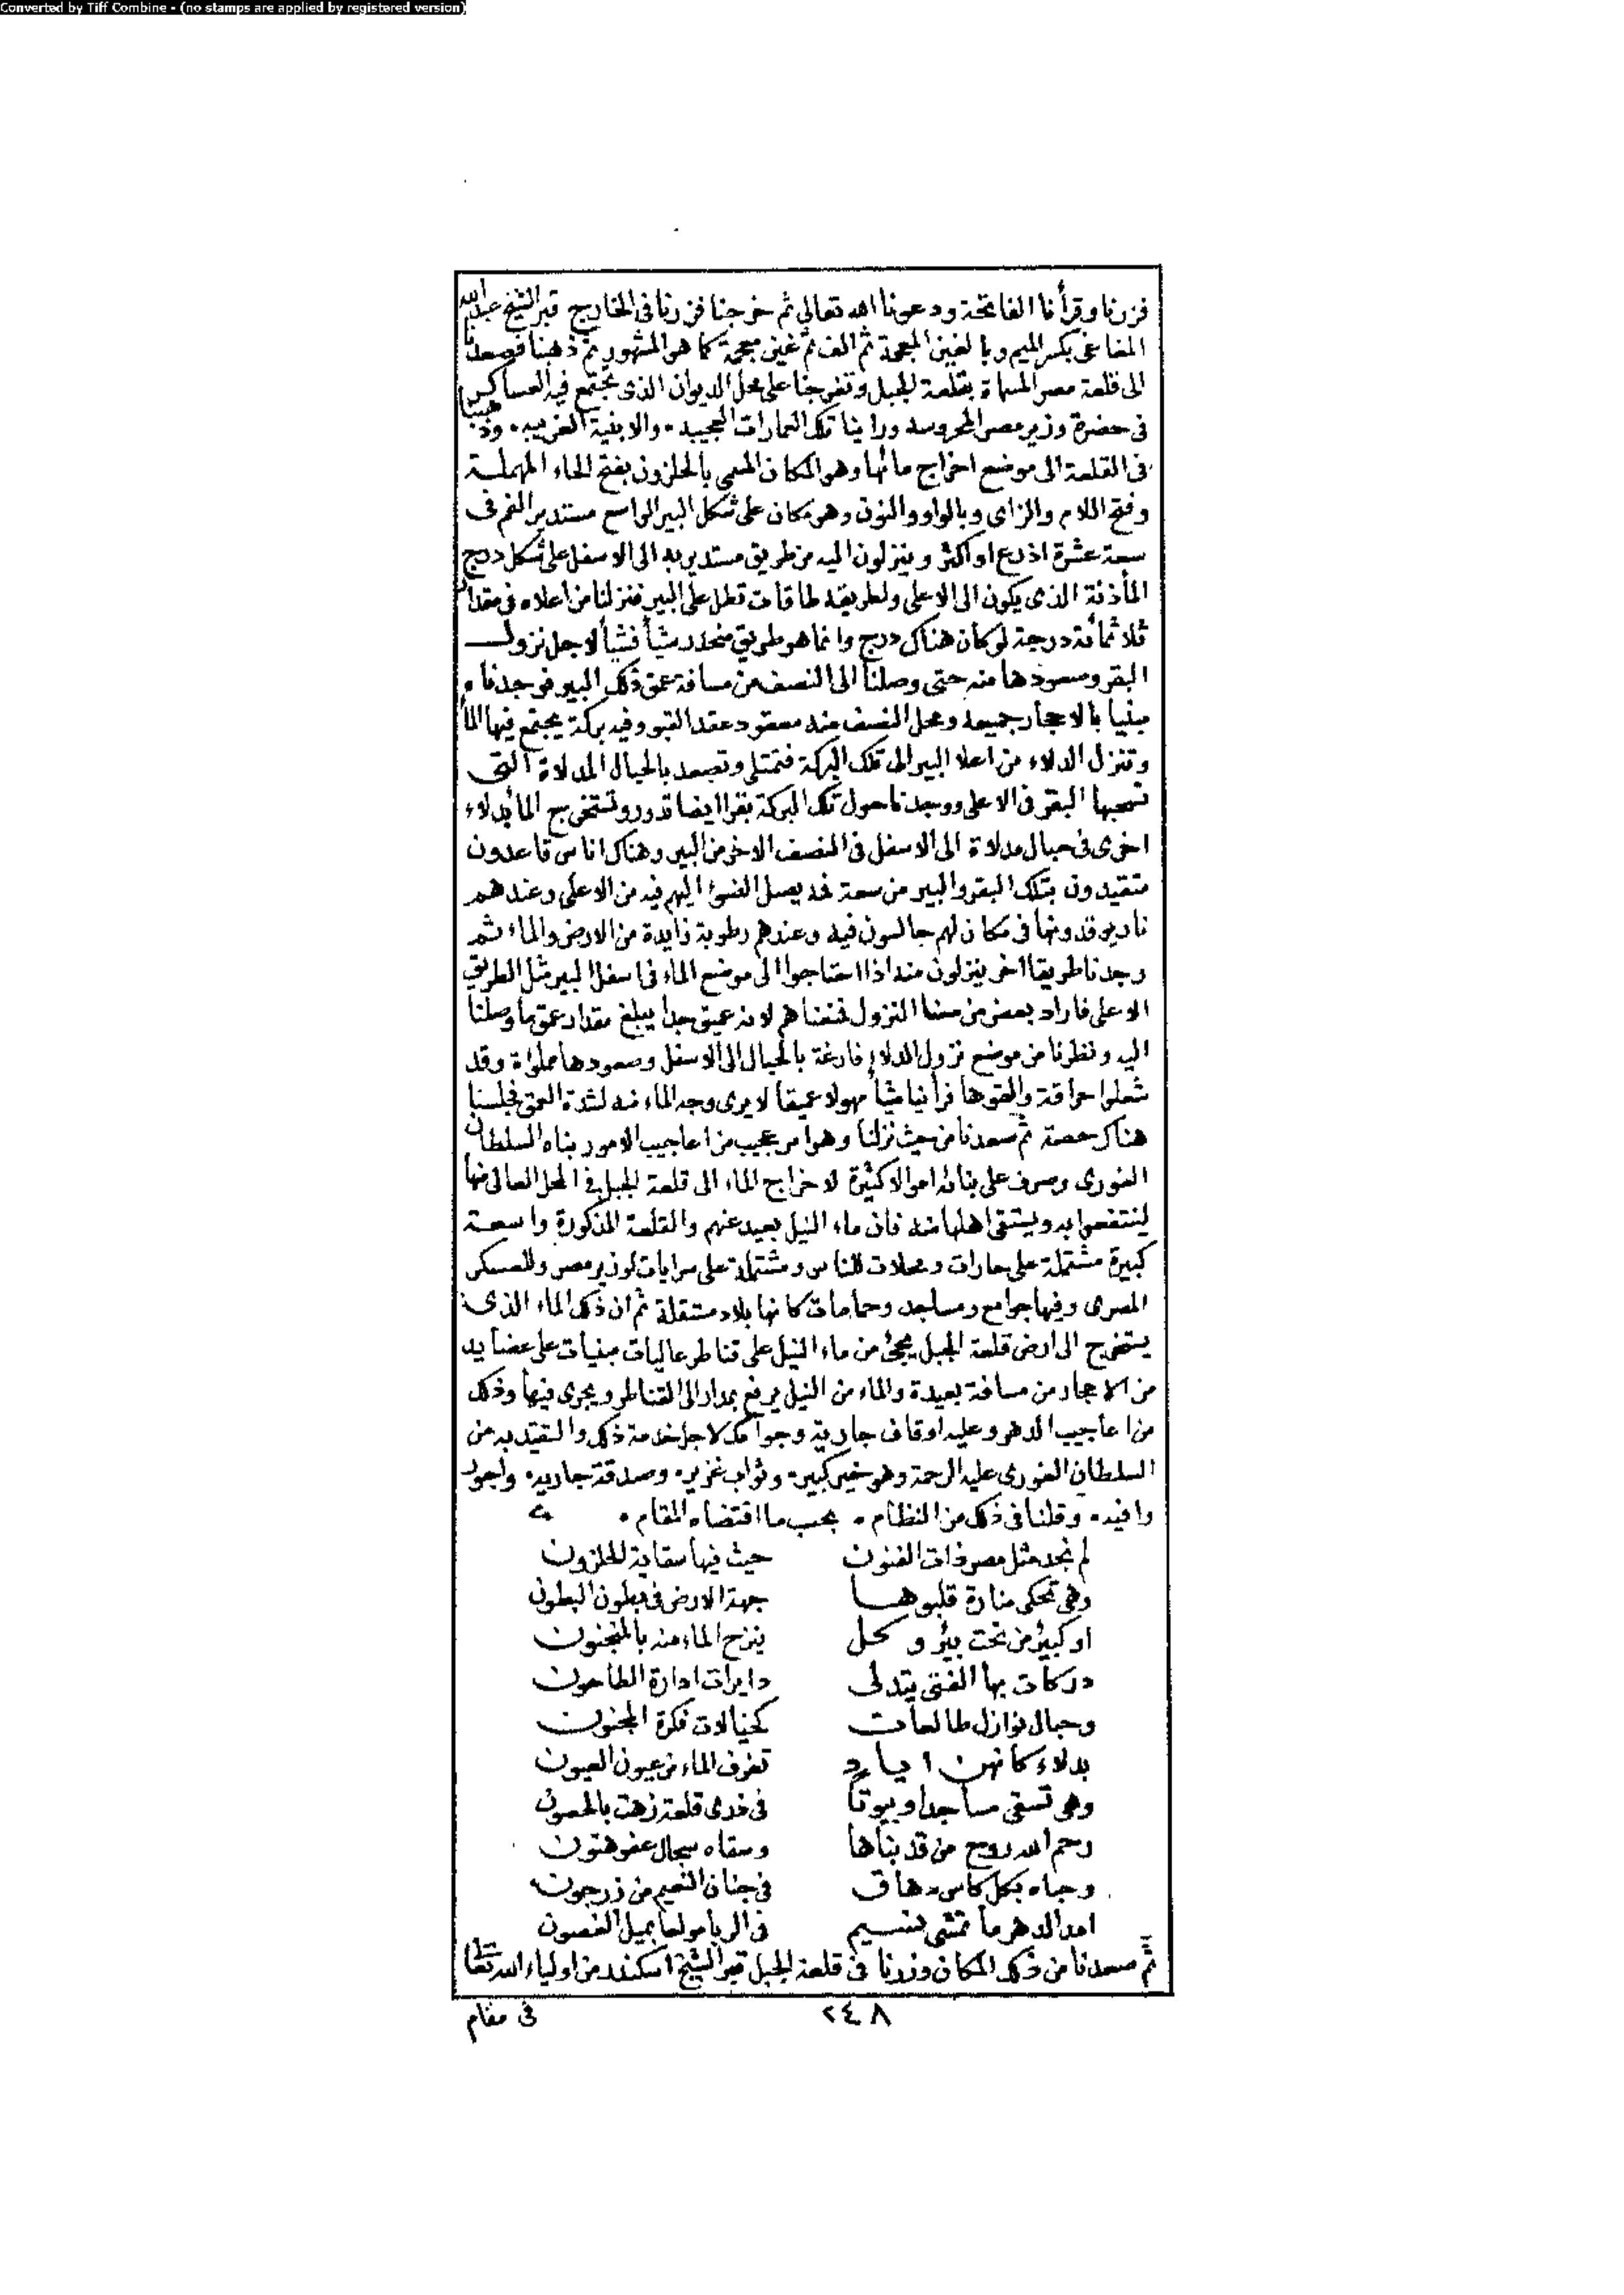 Converted by Tiff Combine - (no stamps are applied by registered version)
فزرنا وقرأنا الفاتحة ودعونا الله تعالى ثم خرجنا فزرنا فى الخارج قبر الشيخ عبد الله
المغاغى بكسر الميم وبالغين المعجمة ثم الف ثم غين معجمة كما هو المشهور ثم ذهبنا فصعدنا
الى قلعة مصر المسماة بقلعة الجبل وتفرجنا على محل الديوان الذى يجتمع فيه العساكر
فى حضرة وزير مصر المحروسه وراينا تلك العمارات العجيبه، والابنية الغريبه، وذهبنا
فى القلعة الى موضع اخراج مائها وهو المكان المسمى بالحلزون بفتح الحاء المهملة
وفتح اللام والزاى وبالواو والنون وهو مكان على شكل البير الواسع مستدير الفم فى
سعة عشرة اذرع او اكثر وينزلون اليه من طريق مستدير به الى الاسفل على شكل درج
المأذنة الذى يكون الى الاعلى ولطريقه طاقات تطل على البير فنزلنا من اعلاه فى مقدار
ثلاثمائة درجة لو كان هناك درج وانما هو طريق منحدر شيأ فشيأ لاجل نزول
البقر وصعودها منه حتى وصلنا الى النصف من مسافة عمق ذلك البير فوجدناه
مبنيا بالاحجار جميعه ومحل النصف منه معقود عقد القبو وفيه بركة يجتمع فيها الماء
وتنزل الدلاء من اعلا البير الى تلك البركة فتمتلى وتصعد بالحبال المدلاة التى
تسحبها البقر فى الاعلى ووجدنا حول تلك البركة بقرا ايضا تدور وتستخرج الماء بدلاء
اخرى فى حبال مدلاة الى الاسفل فى النصف الاخر من البير وهناك اناس قاعدون
متقيدون بتلك البقر والبير من سعة فمه يصل الضوء اليهم فيه من الاعلى وعندهم
نار يوقدونها فى مكان لهم جالسون فيه وعندهم رطوبة زايدة من الارض والماء ثم
وجدنا طريقا اخر ينزلون منه اذا احتاجوا الى موضع الماء فى اسفل البير مثل الطريق
الاعلى فاراد بعض من معنا النزول فمنعناهم لانه عميق جدا يبلغ مقدار عمق ما وصلنا
اليه ونظرنا من موضع نزول الدلاء فارغة بالحبال الى الاسفل وصعودها مملؤة وقد
شعلوا حراقة والقوها فرأينا شيأ مهولا عميقا لا يرى وجه الماء منه لشدة العمق فجلسنا
هناك حصة ثم صعدنا من حيث نزلنا وهو امر عجيب من اعاجيب الامور بناه السلطان
الغورى وصرف على بنائه اموالا كثيرة لاخراج الماء الى قلعة الجبل فى المحل العالى منها
لينتفعوا به ويستقى اهلها منه فان ماء النيل بعيد عنهم والقلعة المذكورة واسعة
كبيرة مشتملة على حارات ومحلات للناس ومشتملة على سرايات لوزير مصر وللعسكر
المصرى وفيها جوامع ومساجد وحمامات كانها بلاد مستقلة ثم ان ذلك الماء الذى
يستخرج الى ارض قلعة الجبل يجئ من ماء النيل على قناطر عاليات مبنيات على عضايد
من الاحجار من مسافة بعيدة والماء من النيل يرفع بمدار الى القناطر ويجرى فيها وذلك
من اعاجيب الدهر وعليه اوقاف جارية وجوامك لاجل خدمة ذلك والتقيد به من
السلطان الغورى عليه الرحمة وهو خير كبير، وثواب غزير، وصدقة جاريه، واجور
وافيه، وقلنا فى ذلك من النظام، بحسب ما اقتضاه المقام،
لم نجد مثل مصر ذات الفنون حيث فيها سقاية الحلزون
وهى تحكى منارة قلبوها جهة الارض فى بطون البطون
او كبئر من تحت بئر وكل ينزح الماء منه بالمنجنون
دركات بها الفتى يتدلى دايرات ادارة الطاحون
وحبال نوازل طالعات كخيالات فكرة المجنون
بدلاء كانهن اياد تغرف الماء من عيون العيون
وهى تسقى مساجدا وبيوتا فى ذرى قلعة زهت بالحصون
رحم الله روح من قد بناها وسقاه سجال عفو هتون
وحباه بكل كاس دهاق فى جنان النعيم من زرجون
امد الدهر ما تمشى نسيم فى الربا مولعا بميل الغصون
ثم صعدنا من ذلك المكان وزرنا فى قلعة الجبل قبر الشيخ اسكندر من اولياء الله تعالى
٢٤٨
فى مقام